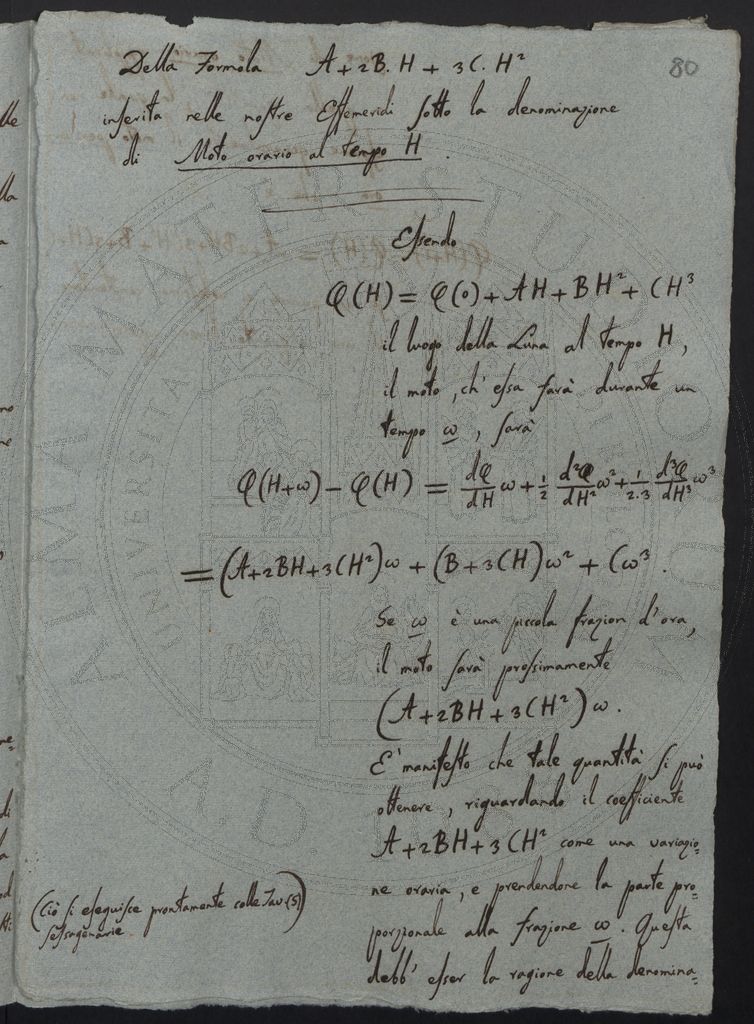 80
Della Formola A+2B.H + 3C.H²
inserita nelle nostre Effemeridi sotto la denominazione
di Moto orario al tempo H.
Essendo
φ(H) = φ(0) + AH + BH² + CH³
il luogo della Luna al tempo H,
il moto, ch'essa farà durante un
tempo ω, sarà
φ(H+ω) − φ(H) = dφ/dH ω + 1/2 d²φ/dH² ω² + 1/2.3 d³φ/dH³ ω³
= (A+2BH+3CH²)ω + (B+3CH)ω² + Cω³.
Se ω è una piccola frazion d'ora,
il moto sarà prossimamente
(A+2BH+3CH²)ω.
E' manifesto che tale quantità si può
ottenere, riguardando il coefficiente
A+2BH+3CH² come una variazio-
ne oraria, e prendendone la parte pro-
porzionale alla frazione ω. Questa
debb'esser la ragione della denomina-
(Ciò si eseguisce prontamente colle Tav.(5)
sessagenarie)